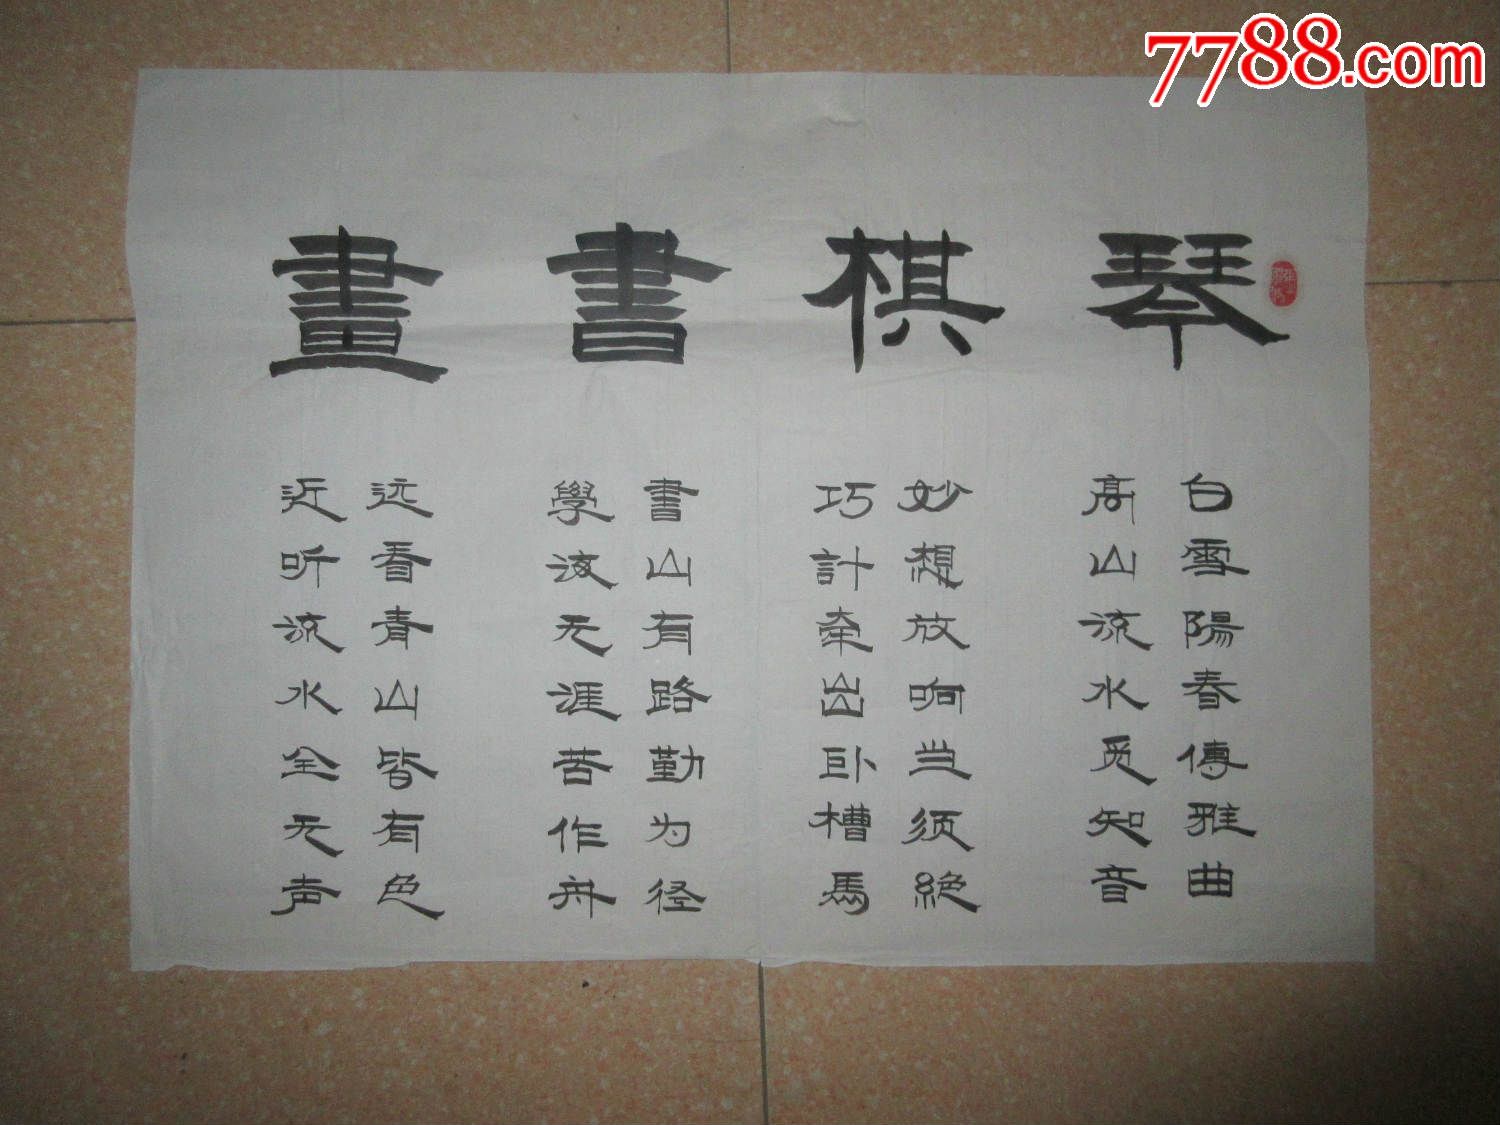 7788.com
琴棋書畫
白雪陽春傳雅曲
高山流水觅知音
妙想放响当须絶
巧計牽出卧槽馬
書山有路勤为径
學海无涯苦作舟
远看青山皆有色
近听流水全无声